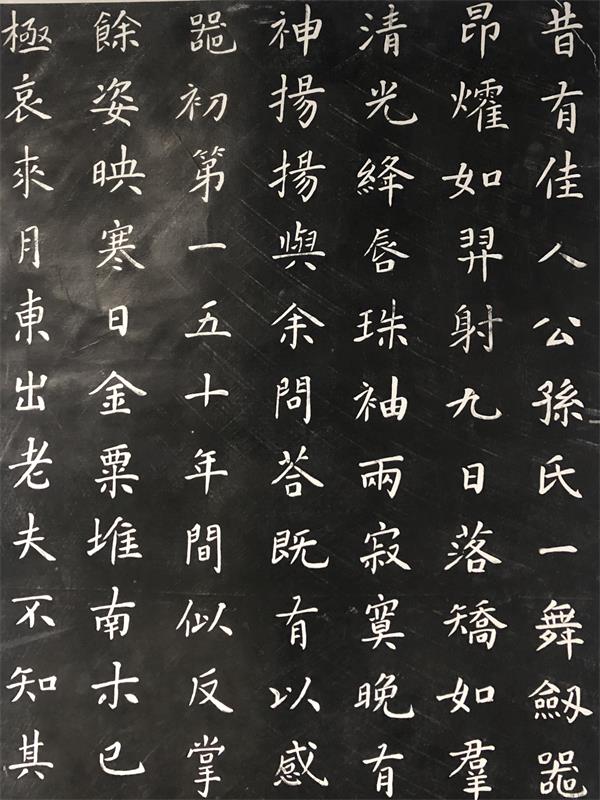 昔有佳人公孫氏一舞劒噐
昂燿如羿射九日落矯如羣
清光絳唇珠袖兩寂寞晚有
神揚揚與余問荅既有以感
噐初第一五十年間似反掌
餘姿映寒日金粟堆南木已
極哀來月東出老夫不知其